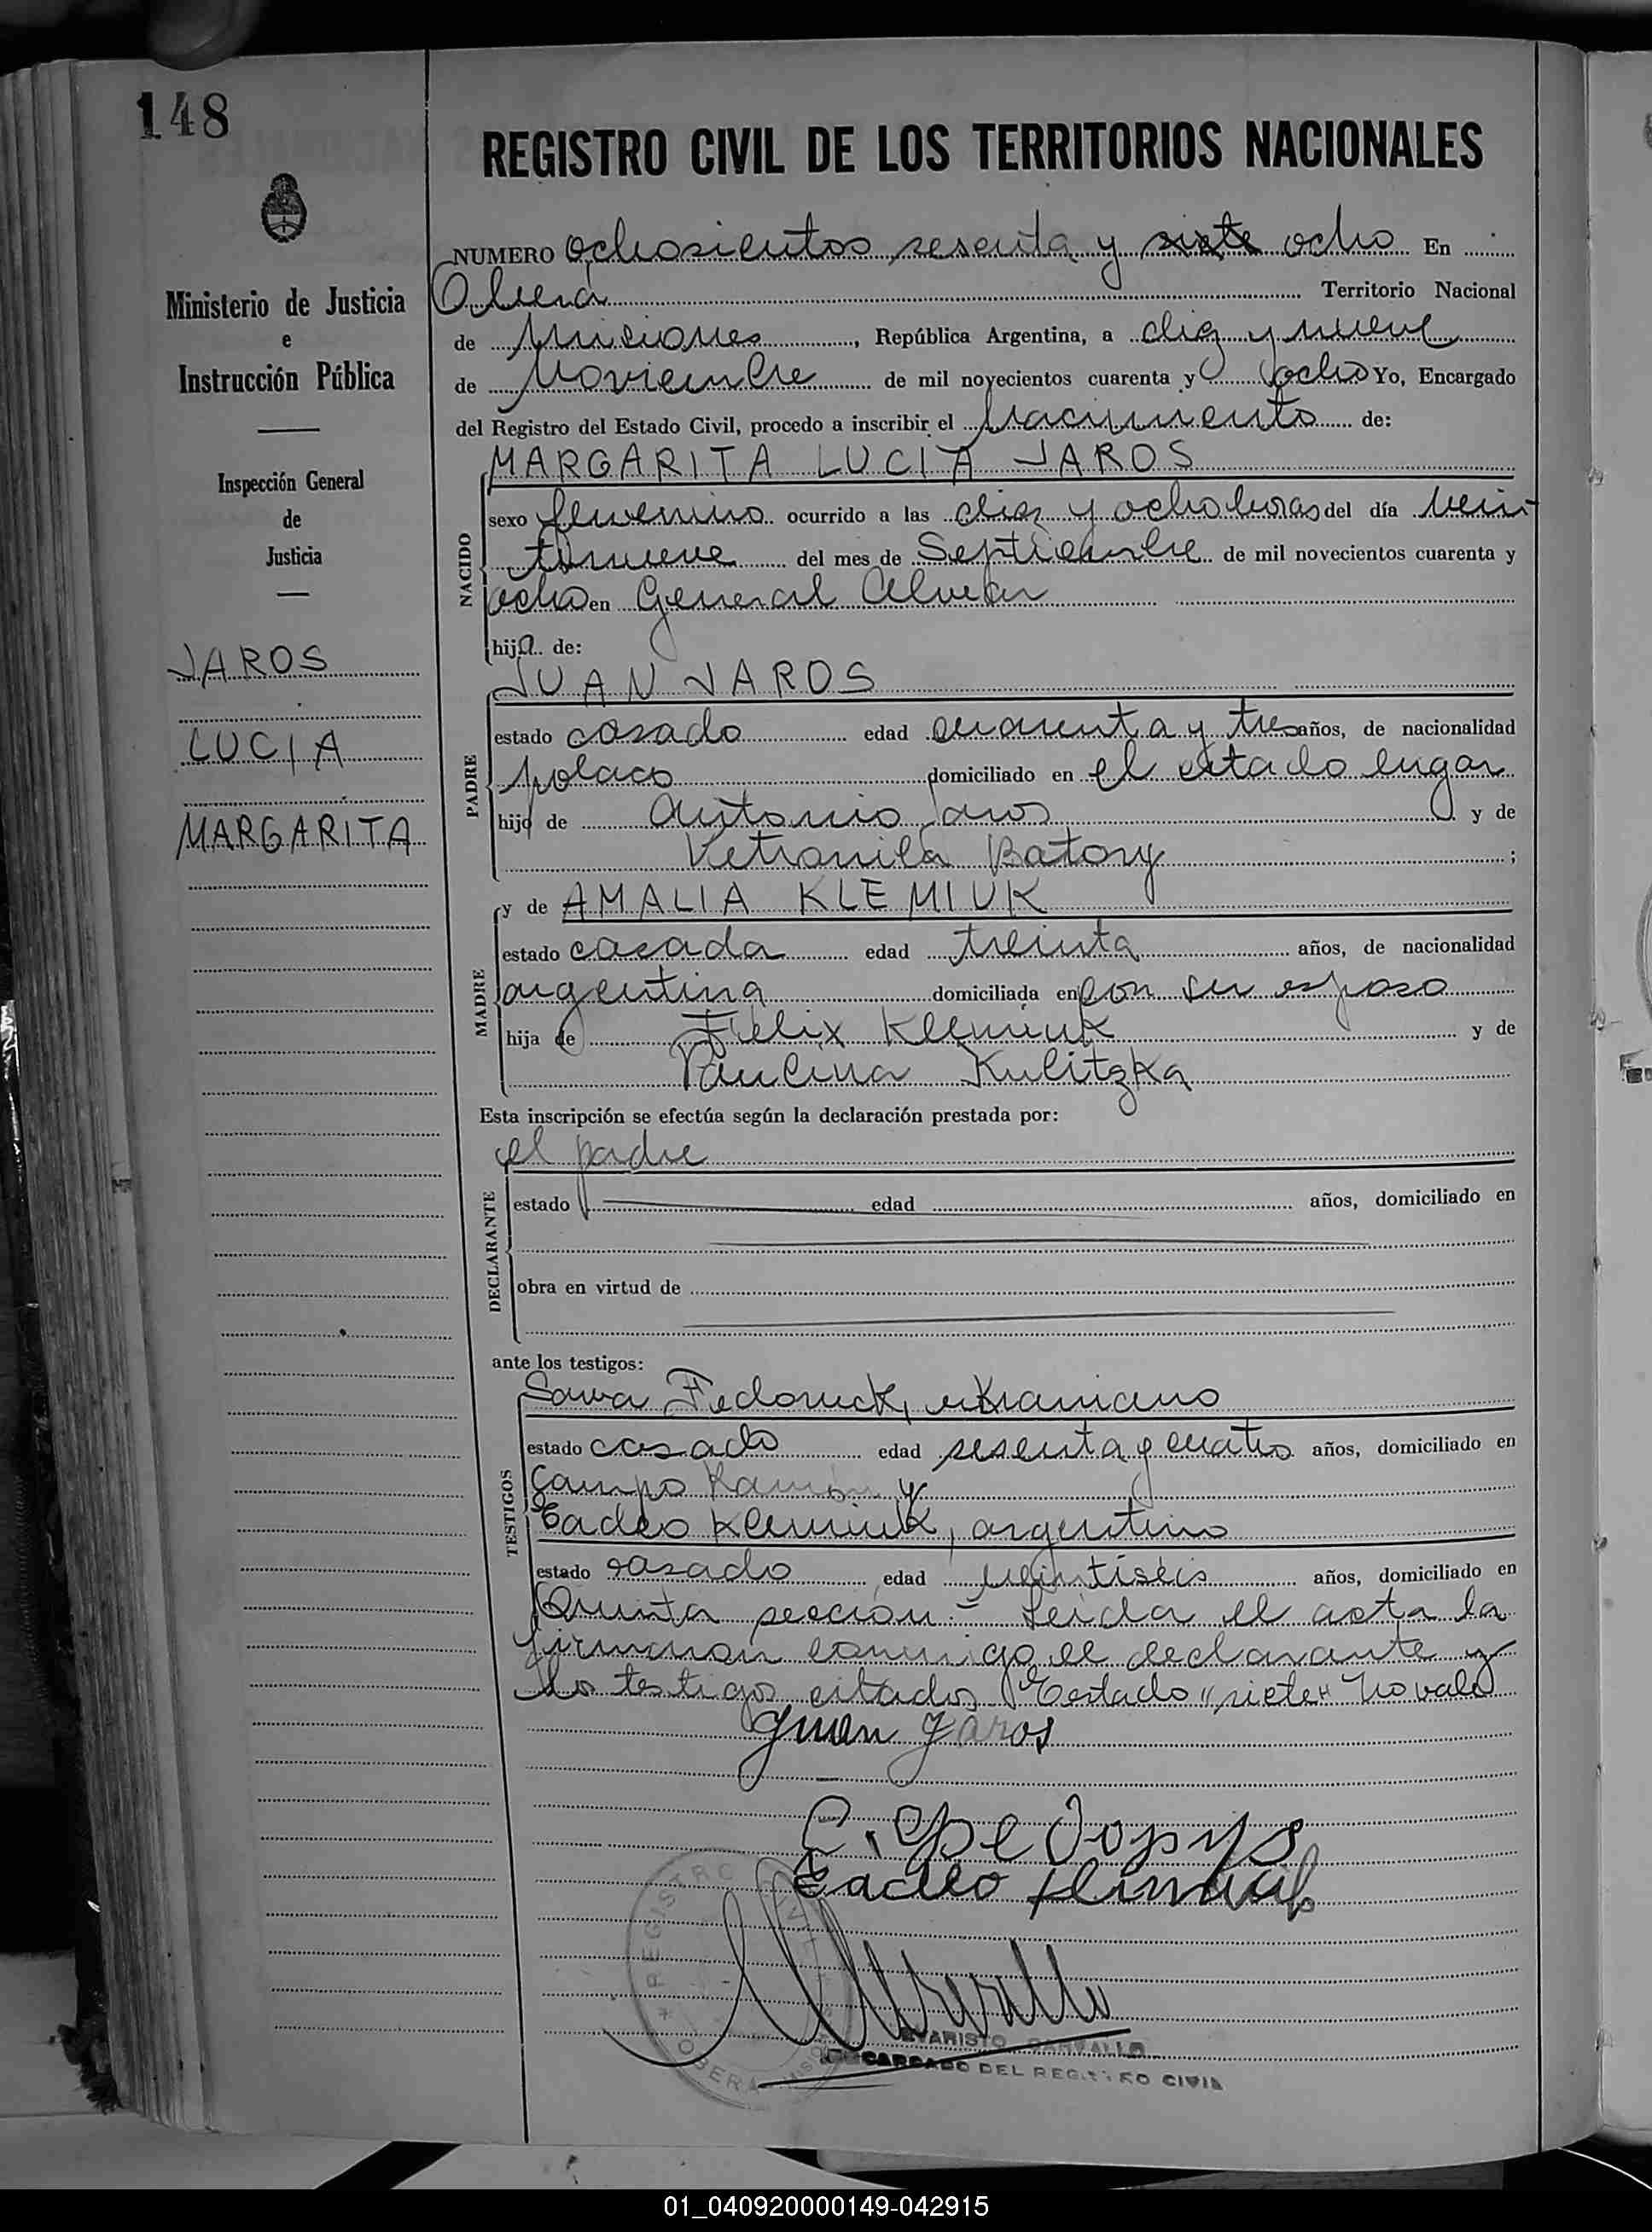 148
REGISTRO CIVIL DE LOS TERRITORIOS NACIONALES
NUMERO ochosientos sesenta y siete ocho En
Oberá Territorio Nacional
de Misiones, República Argentina, a diez y nueve
de Noviembre de mil novecientos cuarenta y ocho Yo, Encargado
del Registro del Estado Civil, procedo a inscribir el Nacimiento de:
MARGARITA LUCIA JAROS
sexo femenino ocurrido a las diez y ocho horas del día vein
tinueve del mes de Septiembre de mil novecientos cuarenta y
ocho en General Alvear
hija de:
NACIDO
JUAN JAROS
estado casado edad cuarenta y tres años, de nacionalidad
polaco domiciliado en el citado lugar
hijo de Antonio Jaros y de
Petronila Batory ;
PADRE
y de AMALIA KLEMIUK
estado casada edad treinta años, de nacionalidad
argentina domiciliada en con su esposo
hija de Felix Klemiuk y de
Paulina Kulitzka
MADRE
Esta inscripción se efectúa según la declaración prestada por:
el padre
estado edad años, domiciliado en
obra en virtud de
DECLARANTE
ante los testigos:
Sawa Fedoruck, ukraniano
estado casado edad sesenta y cuatro años, domiciliado en
Campo Ramón y
Tadeo Klemiuk, argentino
estado casado edad veintiseis años, domiciliado en
TESTIGOS
Quinta sección.- Leida el acta la
firmaron conmigo el declarante y
los testigos citados Testado "siete" No vale
Juan Jaros
Tadeo
REGISTRO
OBERA
EVARISTO CARVALLO
ENCARGADO DEL REGISTRO CIVIL
Ministerio de Justicia
e
Instrucción Pública
Inspección General
de
Justicia
JAROS
LUCIA
MARGARITA
01_040920000149-042915